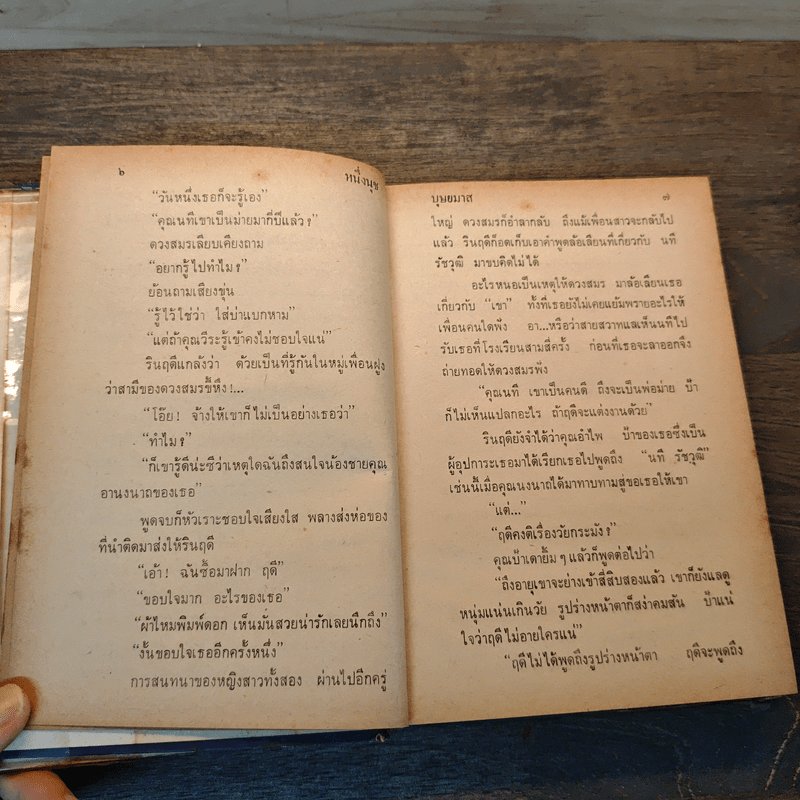 ๖ หนึ่งนุช
“วันหนึ่งเธอก็จะรู้เอง”
“คุณนทีเขาเป็นม่ายมากี่ปีแล้ว?”
ดวงสมรเลียบเคียงถาม
“อยากรู้ไปทำไม?”
ย้อนถามเสียงขุ่น
“รู้ไว้ใช่ว่า ใส่บ่าแบกหาม”
“แต่ถ้าคุณวีระรู้เข้าคงไม่ชอบใจแน่”
รินฤดีแกล้งว่า ด้วยเป็นที่รู้กันในหมู่เพื่อนฝูง
ว่าสามีของดวงสมรขี้หึง!...
“โอ๊ย! จ้างให้เขาก็ไม่เป็นอย่างเธอว่า”
“ทำไม?”
“ก็เขารู้ดีน่ะซีว่าเหตุใดฉันถึงสนใจน้องชายคุณ
อานงนาถของเธอ”
พูดจบก็หัวเราะชอบใจเสียงใส พลางส่งห่อของ
ที่นำติดมาส่งให้รินฤดี
“เอ้า! ฉันซื้อมาฝาก ฤดี”
“ขอบใจมาก อะไรของเธอ”
“ผ้าไหมพิมพ์ดอก เห็นมันสวยน่ารักเลยนึกถึง”
“งั้นขอบใจเธออีกครั้งหนึ่ง”
การสนทนาของหญิงสาวทั้งสอง ผ่านไปอีกครู่
บุษยมาส ๗
ใหญ่ ดวงสมรก็อำลากลับ ถึงแม้เพื่อนสาวจะกลับไป
แล้ว รินฤดีก็อดเก็บเอาคำพูดล้อเลียนที่เกี่ยวกับ นที
รัชวุฒิ มาขบคิดไม่ได้
อะไรหนอเป็นเหตุให้ดวงสมร มาล้อเลียนเธอ
เกี่ยวกับ “เขา” ทั้งที่เธอยังไม่เคยแย้มพรายอะไรให้
เพื่อนคนใดฟัง อา...หรือว่าสายสวาทแลเห็นนทีไป
รับเธอที่โรงเรียนสามสี่ครั้ง ก่อนที่เธอจะลาออกจึง
ถ่ายทอดให้ดวงสมรฟัง
“คุณนที เขาเป็นคนดี ถึงจะเป็นพ่อม่าย ป้า
ก็ไม่เห็นแปลกอะไร ถ้าฤดีจะแต่งงานด้วย”
รินฤดียังจำได้ว่าคุณอำไพ ป้าของเธอซึ่งเป็น
ผู้อุปการะเธอมาได้เรียกเธอไปพูดถึง “นที รัชวุฒิ”
เช่นนี้เมื่อคุณนงนาถได้มาทาบทามสู่ขอเธอให้เขา
“แต่...”
“ฤดีคงติเรื่องวัยกระมัง?”
คุณป้าเดายิ้ม ๆ แล้วก็พูดต่อไปว่า
“ถึงอายุเขาจะย่างเข้าสี่สิบสองแล้ว เขาก็ยังแลดู
หนุ่มแน่นเกินวัย รูปร่างหน้าตาก็สง่าคมสัน ป้าแน่
ใจว่าฤดีไม่อายใครแน่”
“ฤดีไม่ได้พูดถึงรูปร่างหน้าตา ฤดีจะพูดถึง